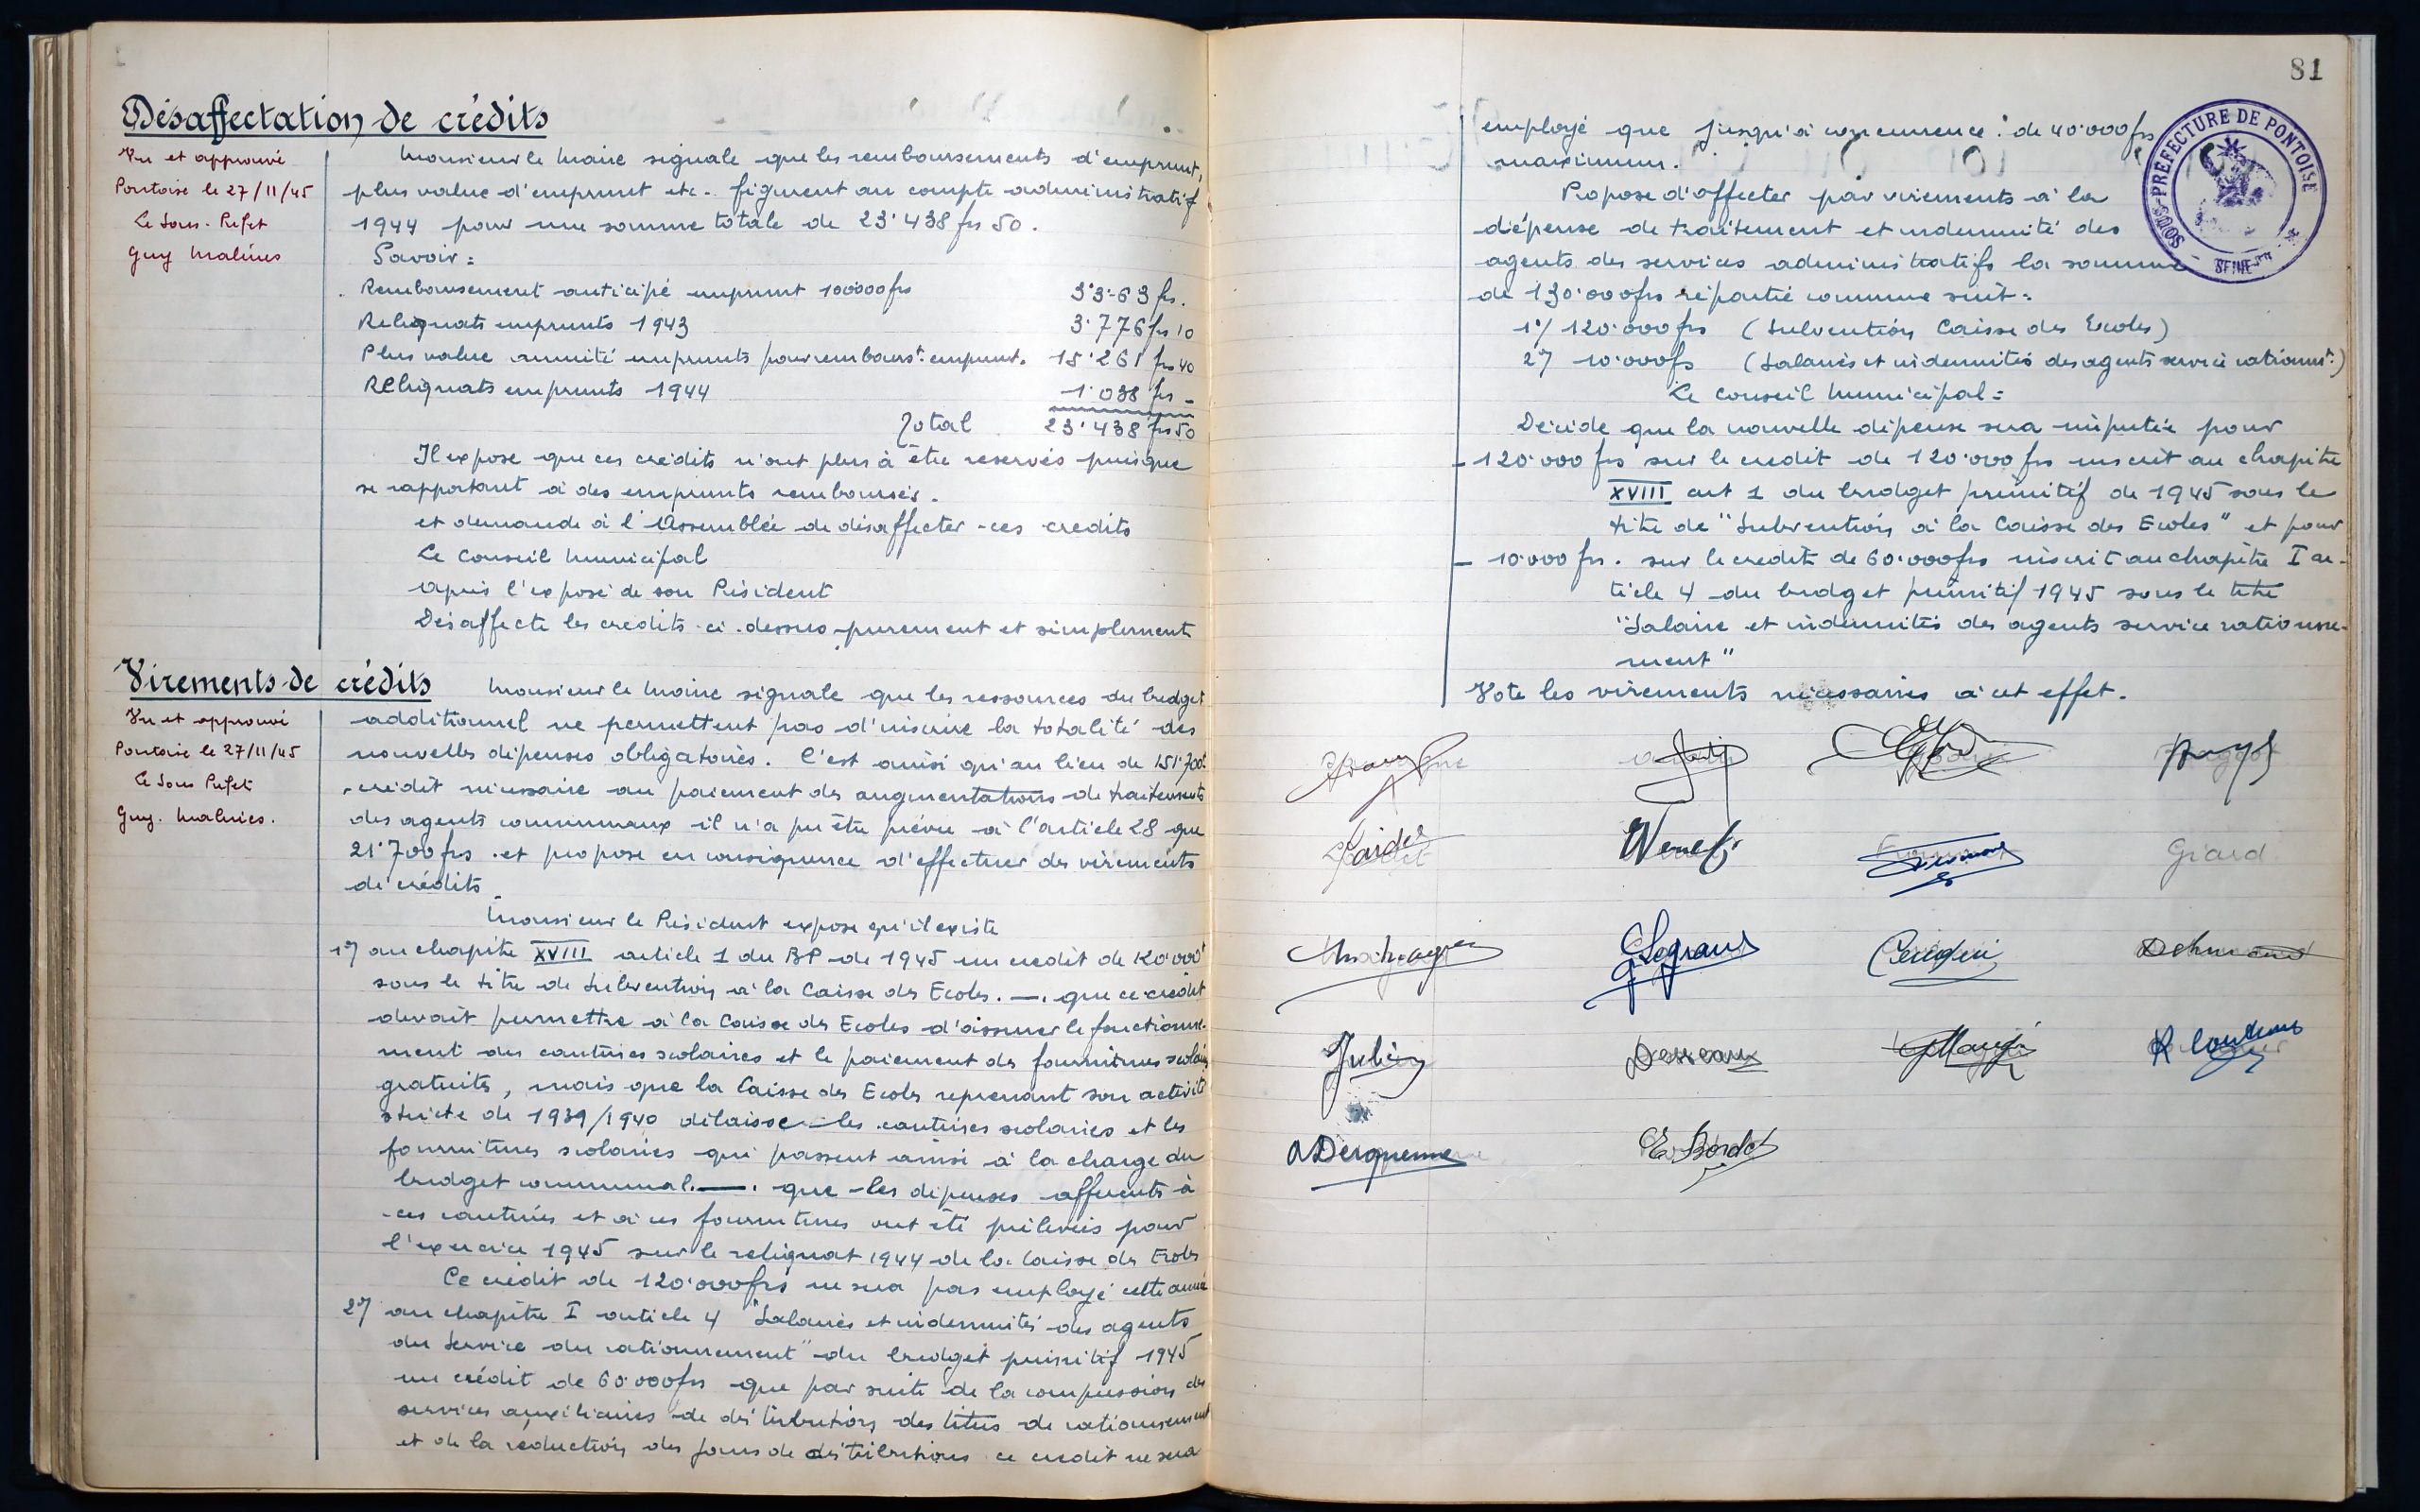 Désaffectation de crédits
Vu et approuvé
Pontoise le 27/11/45
Le Sous-Préfet
Guy Malines
Monsieur le Maire signale que les remboursements d'emprunt,
plus value d'emprunt etc. figurent au compte administratif
1944 pour une somme totale de 23.438 frs 50.
Savoir :
Remboursement anticipé emprunt 100.000 frs 3.363 frs.
Reliquats emprunts 1943 3.776 frs 10
Plus value annuité emprunts pour rembourst. emprunt. 15.261 frs 40
Reliquats emprunts 1944 1.038 frs -
Total 23.438 frs 50
Il expose que ces crédits n'ont plus à être réservés puisque
se rapportant à des emprunts remboursés.
et demande à l'Assemblée de désaffecter ces crédits
Le Conseil Municipal
après l'exposé de son Président
Désaffecte les crédits ci-dessus purement et simplement
Virements de crédits
Vu et approuvé
Pontoise le 27/11/45
Le Sous Préfet
Guy. Malines.
Monsieur le Maire signale que les ressources du budget
additionnel ne permettent pas d'inscrire la totalité des
nouvelles dépenses obligatoires. C'est ainsi qu'au lieu de 151.700f
crédit nécessaire au paiement des augmentations de traitements
des agents communaux il n'a pu être prévu à l'article 28 que
21.700 frs et propose en conséquence d'effectuer des virements
de crédits
Monsieur le Président expose qu'il existe
1°/ au chapitre XVIII article 1 du BP de 1945 un crédit de 120.000f
sous le titre de Subvention à la Caisse des Ecoles. —. que ce crédit
devait permettre à la Caisse des Ecoles d'assurer le fonctionne-
ment des cantines scolaires et le paiement des fournitures scolaires
gratuites, mais que la Caisse des Ecoles reprenant son activité
stricte de 1939/1940 délaisse les cantines scolaires et les
fournitures scolaires qui passent ainsi à la charge du
budget communal. —. que les dépenses afférents à
ces cantines et à ces fournitures ont été prélevées pour
l'exercice 1945 sur le reliquat 1944 de la Caisse des Ecoles
Ce crédit de 120.000 frs ne sera pas employé cette année
2°/ au chapitre I article 4 "Salaires et indemnités des agents
du Service du rationnement" du budget primitif 1945
un crédit de 60.000 frs que par suite de la compression des
services auxiliaires de distribution des titres de rationnement
et de la réduction des jours de distributions ce crédit ne sera
81
employé que jusqu'à concurrence : de 40.000 frs
maximum.
SOUS-PREFECTURE DE PONTOISE
SEINE-
Propose d'affecter par virements à la
dépense de traitement et indemnité des
agents des services administratifs la somme
de 130.000 frs répartie comme suit :
1°/ 120.000 frs (Subvention Caisse des Ecoles)
2°/ 10.000 frs (Salaires et indemnités des agents service rationnt.)
Le Conseil Municipal :
Décide que la nouvelle dépense sera imputée pour
- 120.000 frs sur le crédit de 120.000 frs inscrit au chapitre
XVIII art 1 du budget primitif de 1945 sous le
titre de "Subvention à la Caisse des Ecoles" et pour
- 10.000 frs. sur le crédit de 60.000 frs inscrit au chapitre I ar-
ticle 4 du budget primitif 1945 sous le titre
"Salaire et indemnités des agents service rationne-
ment"
Vote les virements nécessaires à cet effet.
Giard
GLegrand
Julien Desseaux
ADerquenne E. Bordet